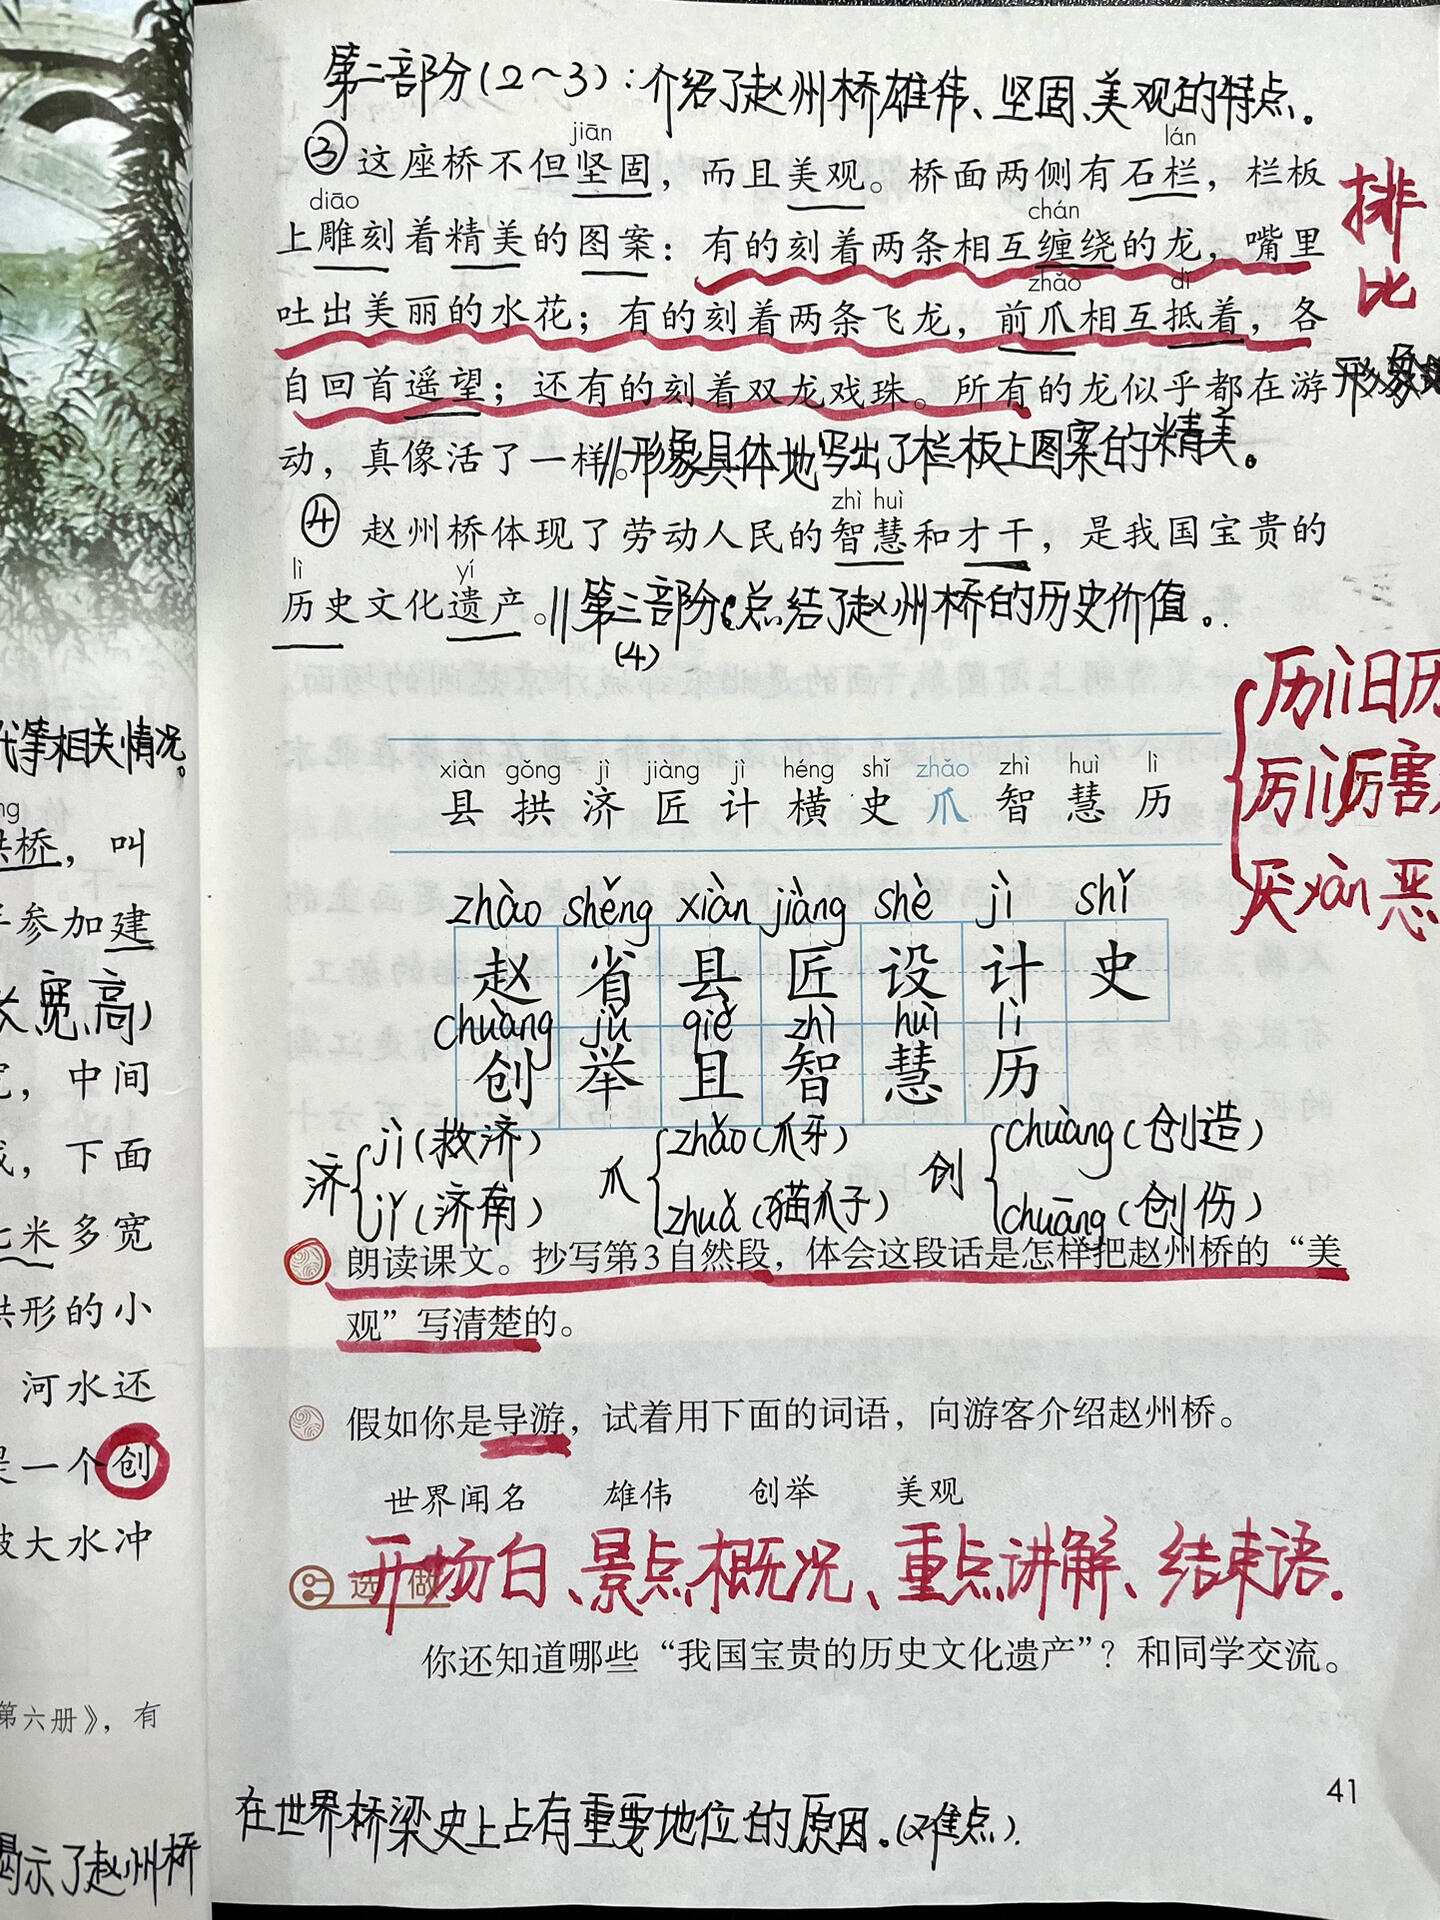 第二部分(2～3):介绍了赵州桥雄伟、坚固、美观的特点。
jiān lán
③这座桥不但坚固，而且美观。桥面两侧有石栏，栏板
diāo chán
上雕刻着精美的图案：有的刻着两条相互缠绕的龙，嘴里
zhǎo dǐ
吐出美丽的水花；有的刻着两条飞龙，前爪相互抵着，各
自回首遥望；还有的刻着双龙戏珠。所有的龙似乎都在游
动，真像活了一样。//形象具体地写出了栏板上图案的精美。
排
比
形象
zhì huì
④赵州桥体现了劳动人民的智慧和才干，是我国宝贵的
lì yí
历史文化遗产。//第三部分:总结了赵州桥的历史价值。
(4)
历lì日历
厉lì厉害
厌yàn恶
xiàn gǒng jì jiàng jì héng shǐ zhǎo zhì huì lì
县 拱 济 匠 计 横 史 爪 智 慧 历
zhào shěng xiàn jiàng shè jì shǐ
赵 省 县 匠 设 计 史
chuàng jǔ qiě zhì huì lì
创 举 且 智 慧 历
济 jì(救济) 爪 zhǎo(爪牙) 创 chuàng(创造)
jǐ(济南) zhuǎ(猫爪子) chuāng(创伤)
朗读课文。抄写第3自然段，体会这段话是怎样把赵州桥的“美
观”写清楚的。
假如你是导游，试着用下面的词语，向游客介绍赵州桥。
世界闻名 雄伟 创举 美观
开场白、景点概况、重点讲解、结束语.
选做
你还知道哪些“我国宝贵的历史文化遗产”？和同学交流。
41
在世界桥梁史上占有重要地位的原因。(难点).
代等相关情况。
ng
拱桥，叫
参加建
宽、高)
，中间
，下面
七米多宽
拱形的小
河水还
是一个创
被大水冲
第六册》，有
揭示了赵州桥